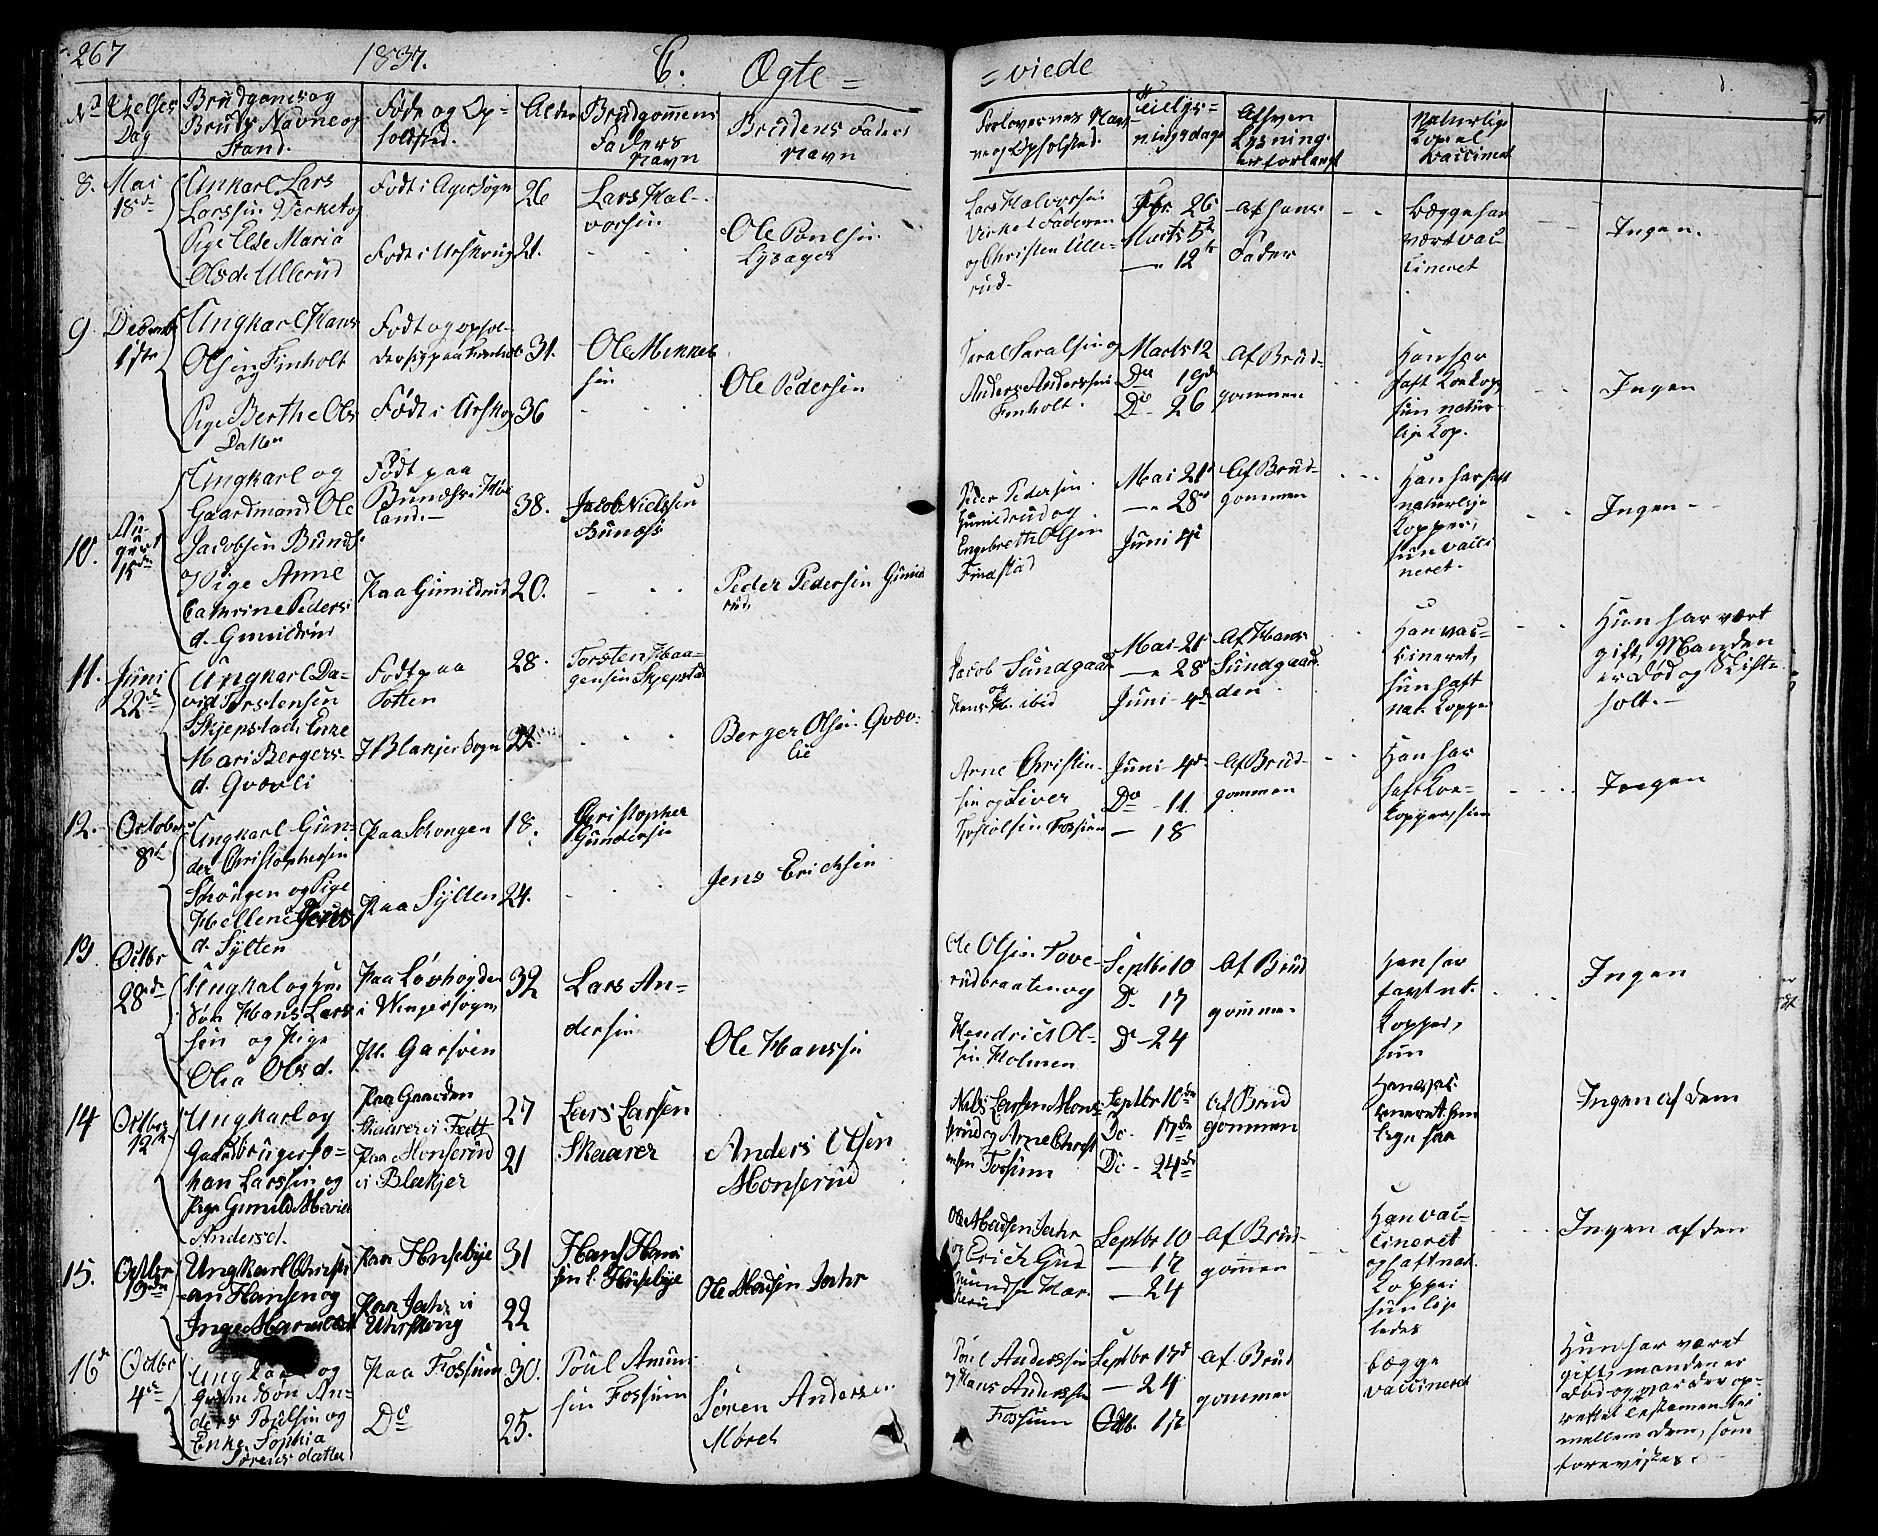 267 1837. C. Ægte = = viede
No Vielses Dag
Brudgoms og Bruds Navne og Stand.
Føde og Opholdsted.
Alder
Brudgommens Faders Navn
Brudens Faders Navn
Forlovernes Navne og Opholdsted.
Tillysningsdage
Af hvem Lysning er forlangt
Naturlige Kop. el. Vaccineret
8. Mai 18de
Ungkarl Lars
Larssen Verket og
Pige Else Maria
Olsd. Ullerud
Født i Agersogn
Født i Urskoug
26
21.
Lars Hal-
vorsen
Ole Poulsen
Lysager
Lars Halvorsen
Verket Faderen
og Christen Ulle-
rud.
Fbr. 26
Marts 5te
— 12te
Af hans
Fader
Begge har
vært vac-
cineret
Ingen.
9. December 1ste
Ungkarl Hans
Olsen Finholt
og
Pige Berthe Ols
Datter
Født og ophol-
der sig paa Finholt
Født i Urskog
31.
36
Ole Mikkel-
sen
Ole Pedersen
Anders Anderssen
Finholt.
Marts 12
Do 19de
Do 26
Af Brud-
gommen
Han har
haft Koekop.
hun natur-
lige Kop.
Ingen
10. August 15de
Ungkarl og
Gaardmand Ole
Jacobsen Bunæs
og Pige Anne
Cathrine Peders
d. Gunildrud
Født paa
Bunæs i Høi
land.
Paa Gunildrud
38.
20.
Jacob Nielssen
Bunæs
Peder Pedersen Gunild
rud
Peder Pedersen
Gunildrud og
Engebreth Olsen
Finstad
Mai 21
— 28
Juni 4de
Af Brud-
gommen
Han har haft
naturlige
Kopper,
hun vacci
neret.
Ingen
11. Juni 22de
Ungkarl Da-
vid Torstensen
Skjepstad, Enke
Mari Bergers-
d. Qvævli
Født paa
Totten
I Blakjer Sogn
28.
22.
Torsten Haa-
gensen Skjepstad
Berger Olsen Qvæv-
lie
Jacob Sundgaar
og
Hans H. ibid
Mai 21
— 28
Juni 4de
Af Hans
Sundgaar
den
Han vac-
cineret,
hun haft
nat. Kopper
Hun har vært
gift, Manden
er død og Skift
holt.
12. October 8de
Ungkarl Gun-
der Christophersen
Schougen og Pige
Hellene Jens
d. Sylten
Paa Schougen
Paa Sylten
18.
24.
Christopher
Gundersen
Jens Ericksen
Arne Christen-
sen og Siver
Fossum
Juni 4de
Do 11
— 18
Af Brud-
gommen
Han har
haft Koe-
kopper, hun
Ingen
13. Octbr 28de
Ungkal og Hu
Søn Hans Lars
sen og Pige
Olia Olsd.
Paa Løvhogden
i Vingersogn
Pl. Garsven
32
Lars An-
dersen
Ole Hanssen
Ole Olsen Tove-
rudbraaten og
Hendrick Ol-
sen Holmen
Septbr 10
D. 17
D. 24
Af Brud
gommen
Han har
havt nt.
Kopper,
hun
Ingen
14 Octbr 12te
Ungkarl og
Gaardbruger Jo-
han Larssen og
Pige Gunild Marie
Andersd.
Paa Gaarden
Skaarer i Fedt
Paa Monserud
i Blakjer
27
21
Lars Larsen
Skaarer
Anders Olsen
Monserud
Nils Larsen Mons-
erud og Arne Christ
ensen Fossum
Septbr 10de
Do. 17de
Do. 24de
Af Brud
gommen
Ingen af dem
15. Octbr 19de
Ungkarl Christi
an Hansen og
Inge
Paa Huseby
Paa Jahr i
Urskoug
31
22
Hans Hans
sen Huseby
Ole Madsen Jahr
Ole Madsen Jahr
og Erick Gud
mundsen Har
Septbr 10
— 17
— 24
Af Brud-
gommen
Han vac-
cineret
og haft nat.
Kopper
hun lige
ledes
Ingen af den
16de Octbr 4de
Ungkarl og
Gaardm. Søn An-
ders Poulsen og
Enke Sophia
Sørensdatter
Paa Fossum
Do
30.
25.
Poul Amun
sen Fossum
Søren Andersen
Mørch
Poul Anderssen
og Hans Anderssen
Fossum
Septbr 17de
— 24
Octb. 1te
Af Brud
gommen
Begge
vaccineret
Hun har været
gift, manden er
død og var der op-
rettet Testamente
mellem dem, som
forevistes.